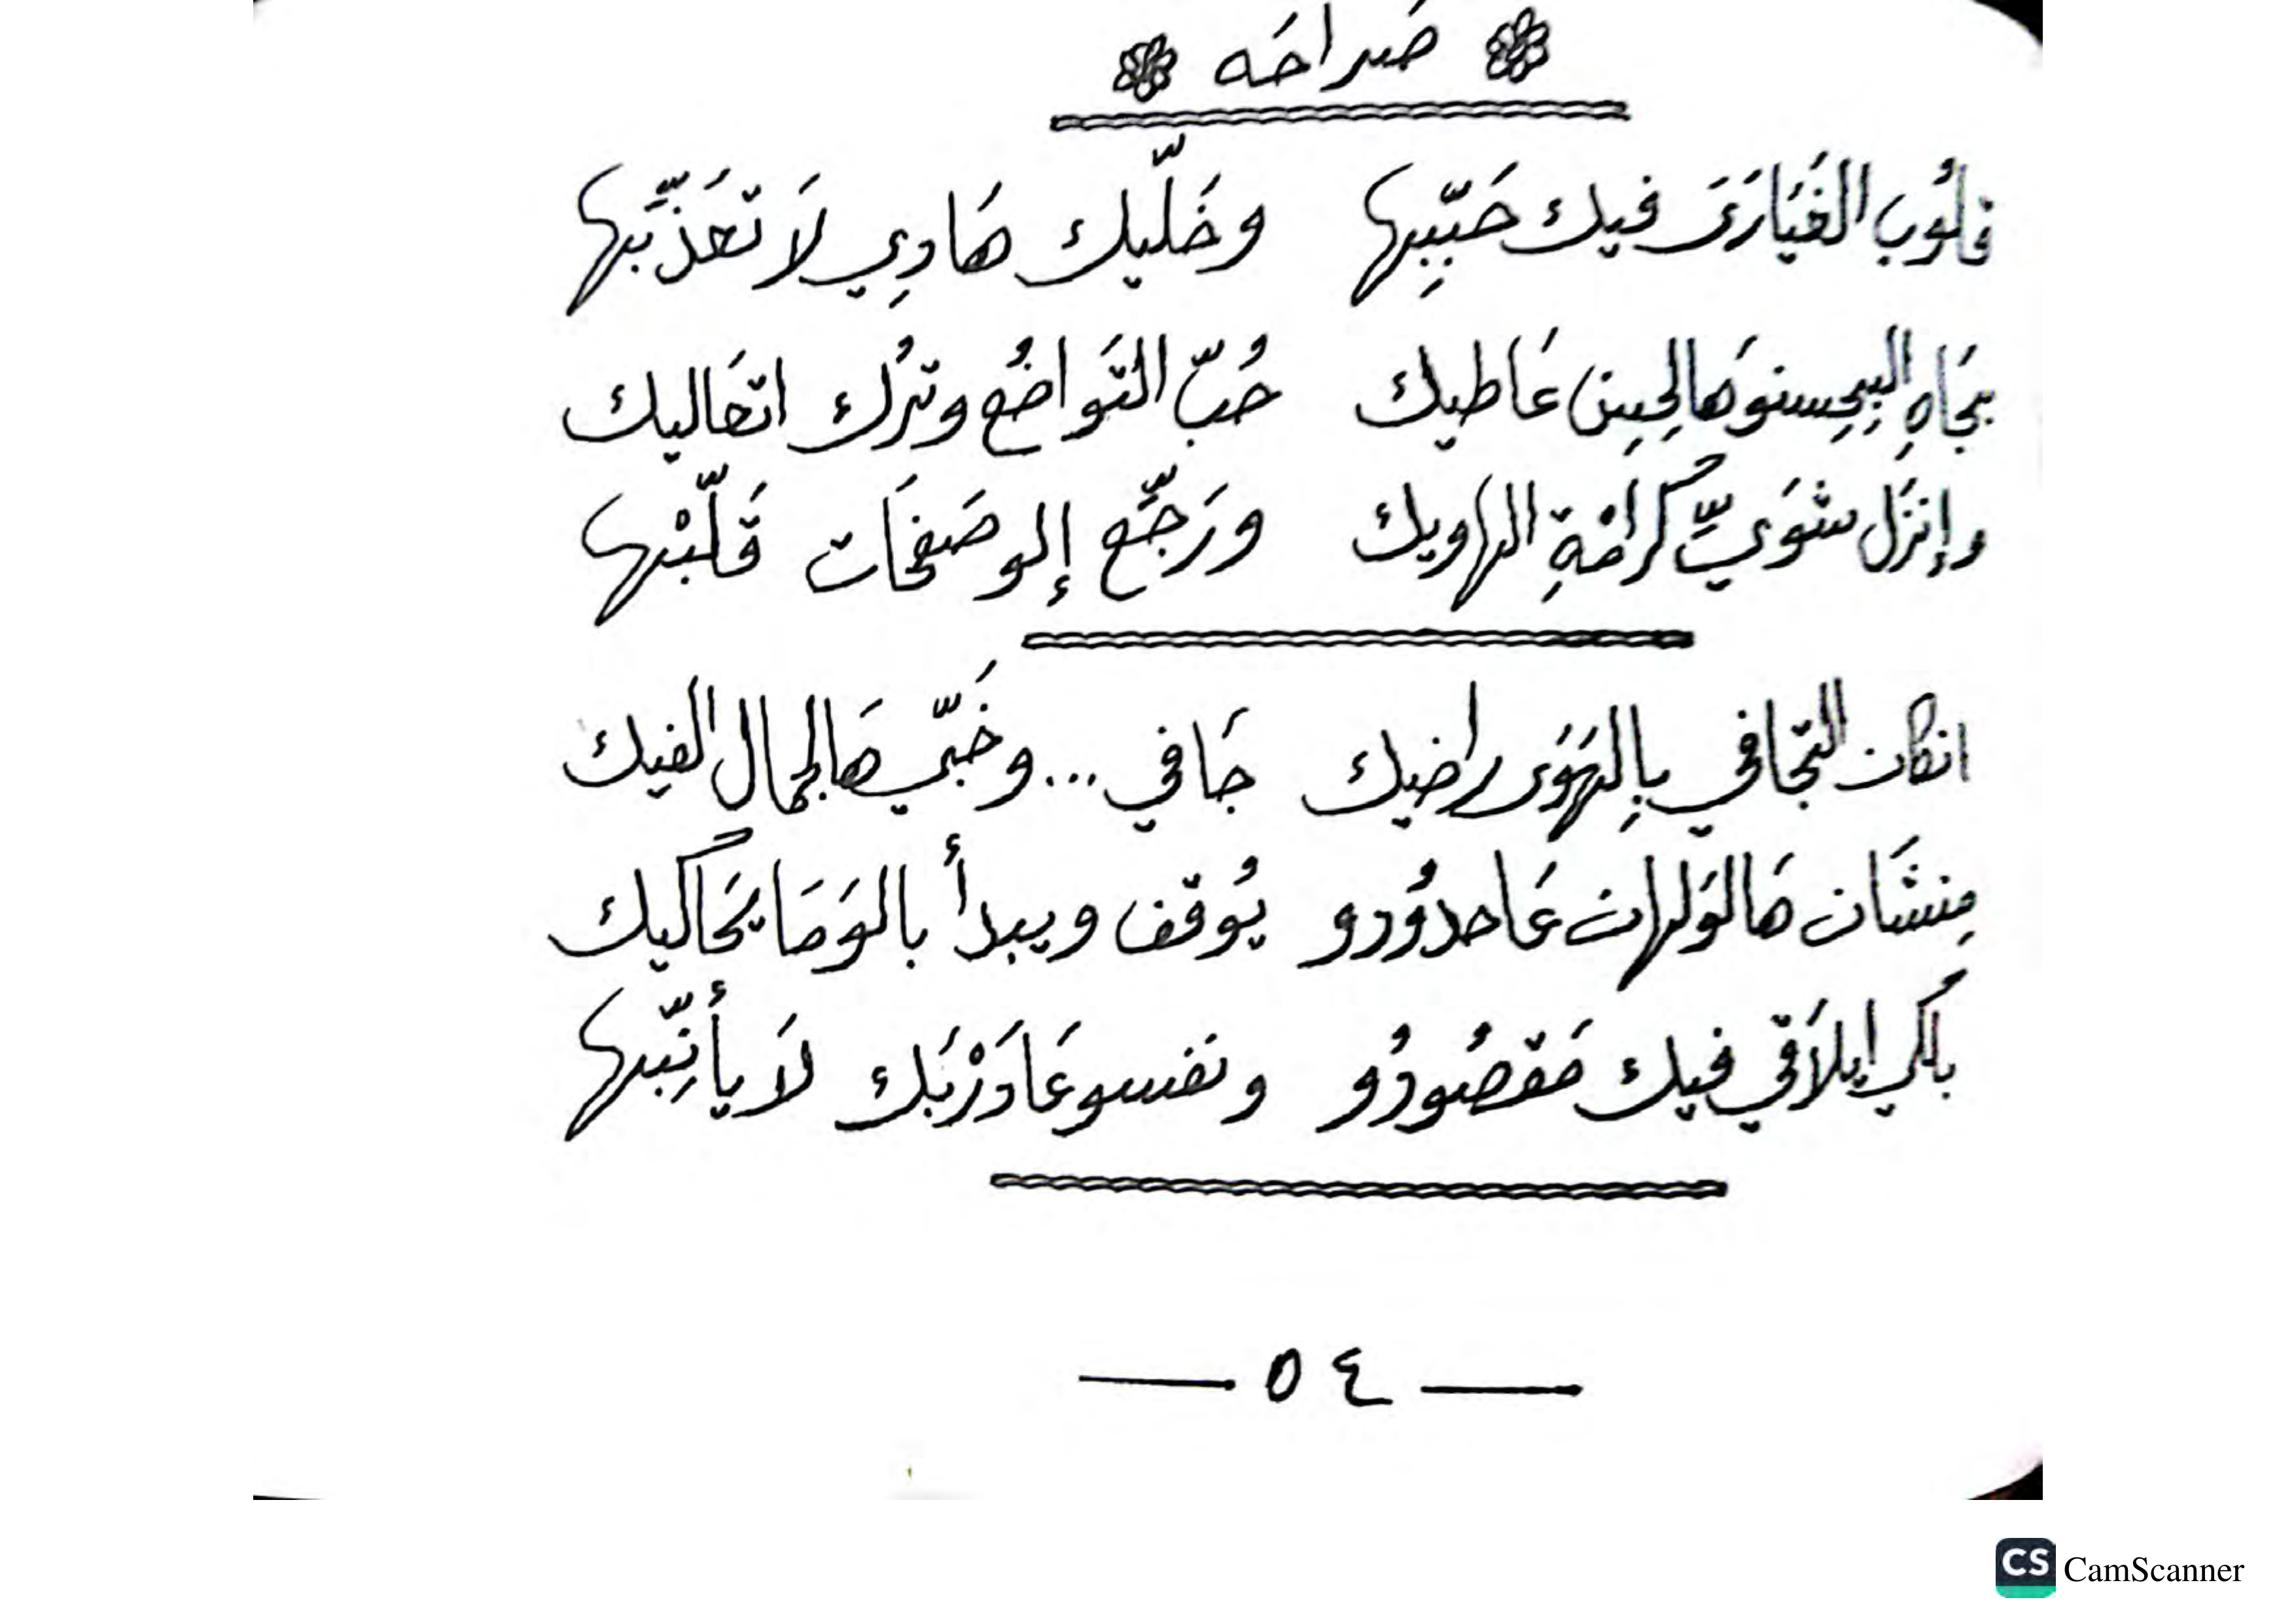 صَراحَه
قلُوب الغَيَارَىَ فيك حَبّبِها وخَلّيك هَادِي لاَ تعَذّبها
بجَاهِ البيحِسنو هَالحِسِن عَاطيك حُبّ التَواضُع وترُك اتعَاليك
وإنزَل شوَيّ كُرامْةِ الهاويك ورَجّع إلو صَفحَات قَلّبْها
انكان التجافي بِالهَوَى راضيك جَافي ... وخَبّي هَالجمال الفيك
مِنشَان هَالوَلهان عَاحدوُدو يُوقف ويبدأ بالوَمَا يحَاكيك
بلكي ايلاَقي فيك مَقصُودُو ونفسو عَادَرْبَك لاَ يأنِّبها
٥٤
CS CamScanner